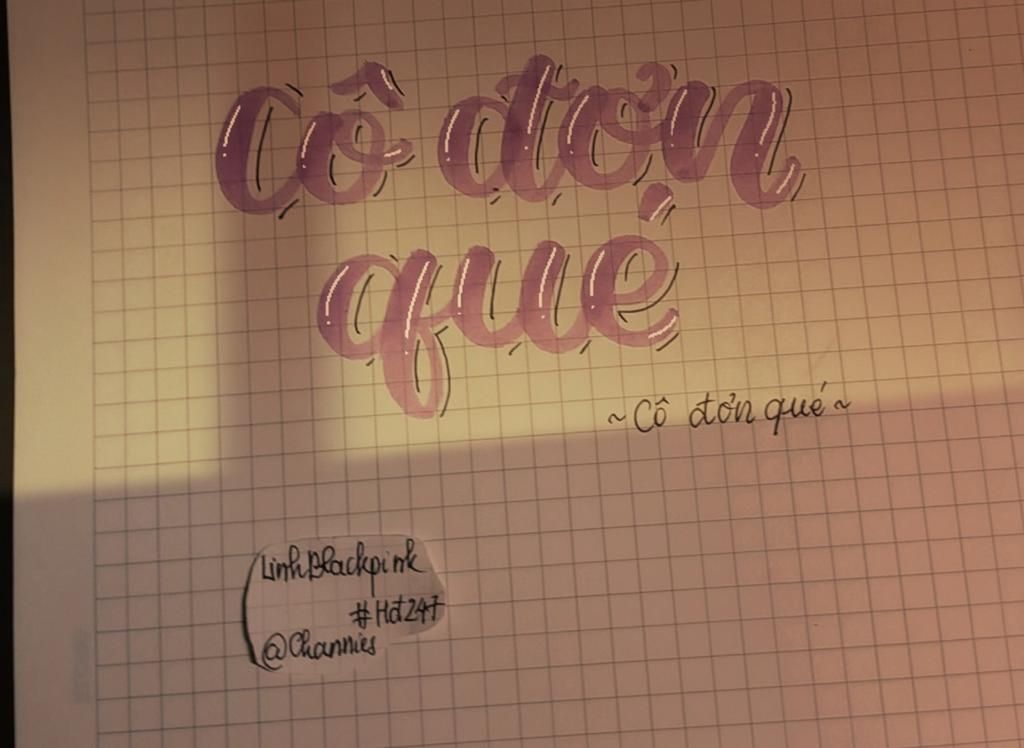 Cô đơn
qué
~Cô đơn qué~
LinhBlackpink
#Hot247
@Channies